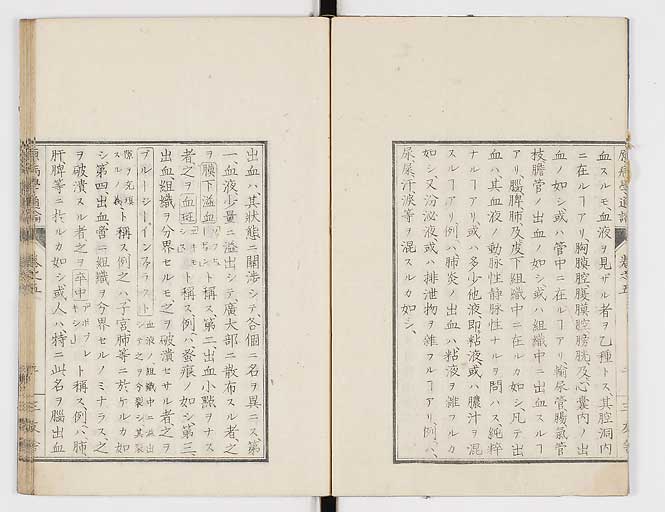 血スルモ、血液ヲ見ザル者ヲ乙種トス其腔洞内
ニ在ルヿアリ胸膜腔腹膜腔膀胱及心囊内ノ出
血ノ如シ或ハ管中ニ在ルヿアリ輸尿管腸氣管
枝膽管ノ出血ノ如シ或ハ組織中ニ出血スルヿ
アリ腦脾肺及皮下組織中ニ在ルカ如シ、凡テ出
血ハ、其血液ノ動脉性静脉性ナルヲ問ハス純粹
ナルヿアリ、或ハ多少他液、即粘液、或ハ膿汁ヲ混
スルヿアリ例ハ肺炎ノ出血ハ粘液ヲ雜フルカ
如シ、又汾泌液或ハ排泄物ヲ雜フルヿアリ、例ハ、
屎尿汗淚等ヲ混スルカ如シ、
出血ハ其狀態ニ關渉シテ、各個ニ名ヲ異ニス第
一、血液少量ニ溢出シテ廣大部ニ散布スル者、之
ヲ膜下溢血ト稱ス、第二、出血小點ヲナス
者、之ヲ血斑ト稱ス、例ハ蚤痕ノ如シ第三、
出血組織ヲ分界セルモ、之ヲ破潰セサル者、之ヲ
ブルージー、インファラスト
ト稱ス例之ハ、子宮、肺等ニ於ケルカ如
シ第四出血啻ニ組織ヲ分界セルノミナラス之
ヲ破潰スル者、之ヲ卒中アポプレキシート稱ス、例ハ、肺、
肝脾等ニ於ルカ如シ或人ハ特ニ此名ヲ腦出血